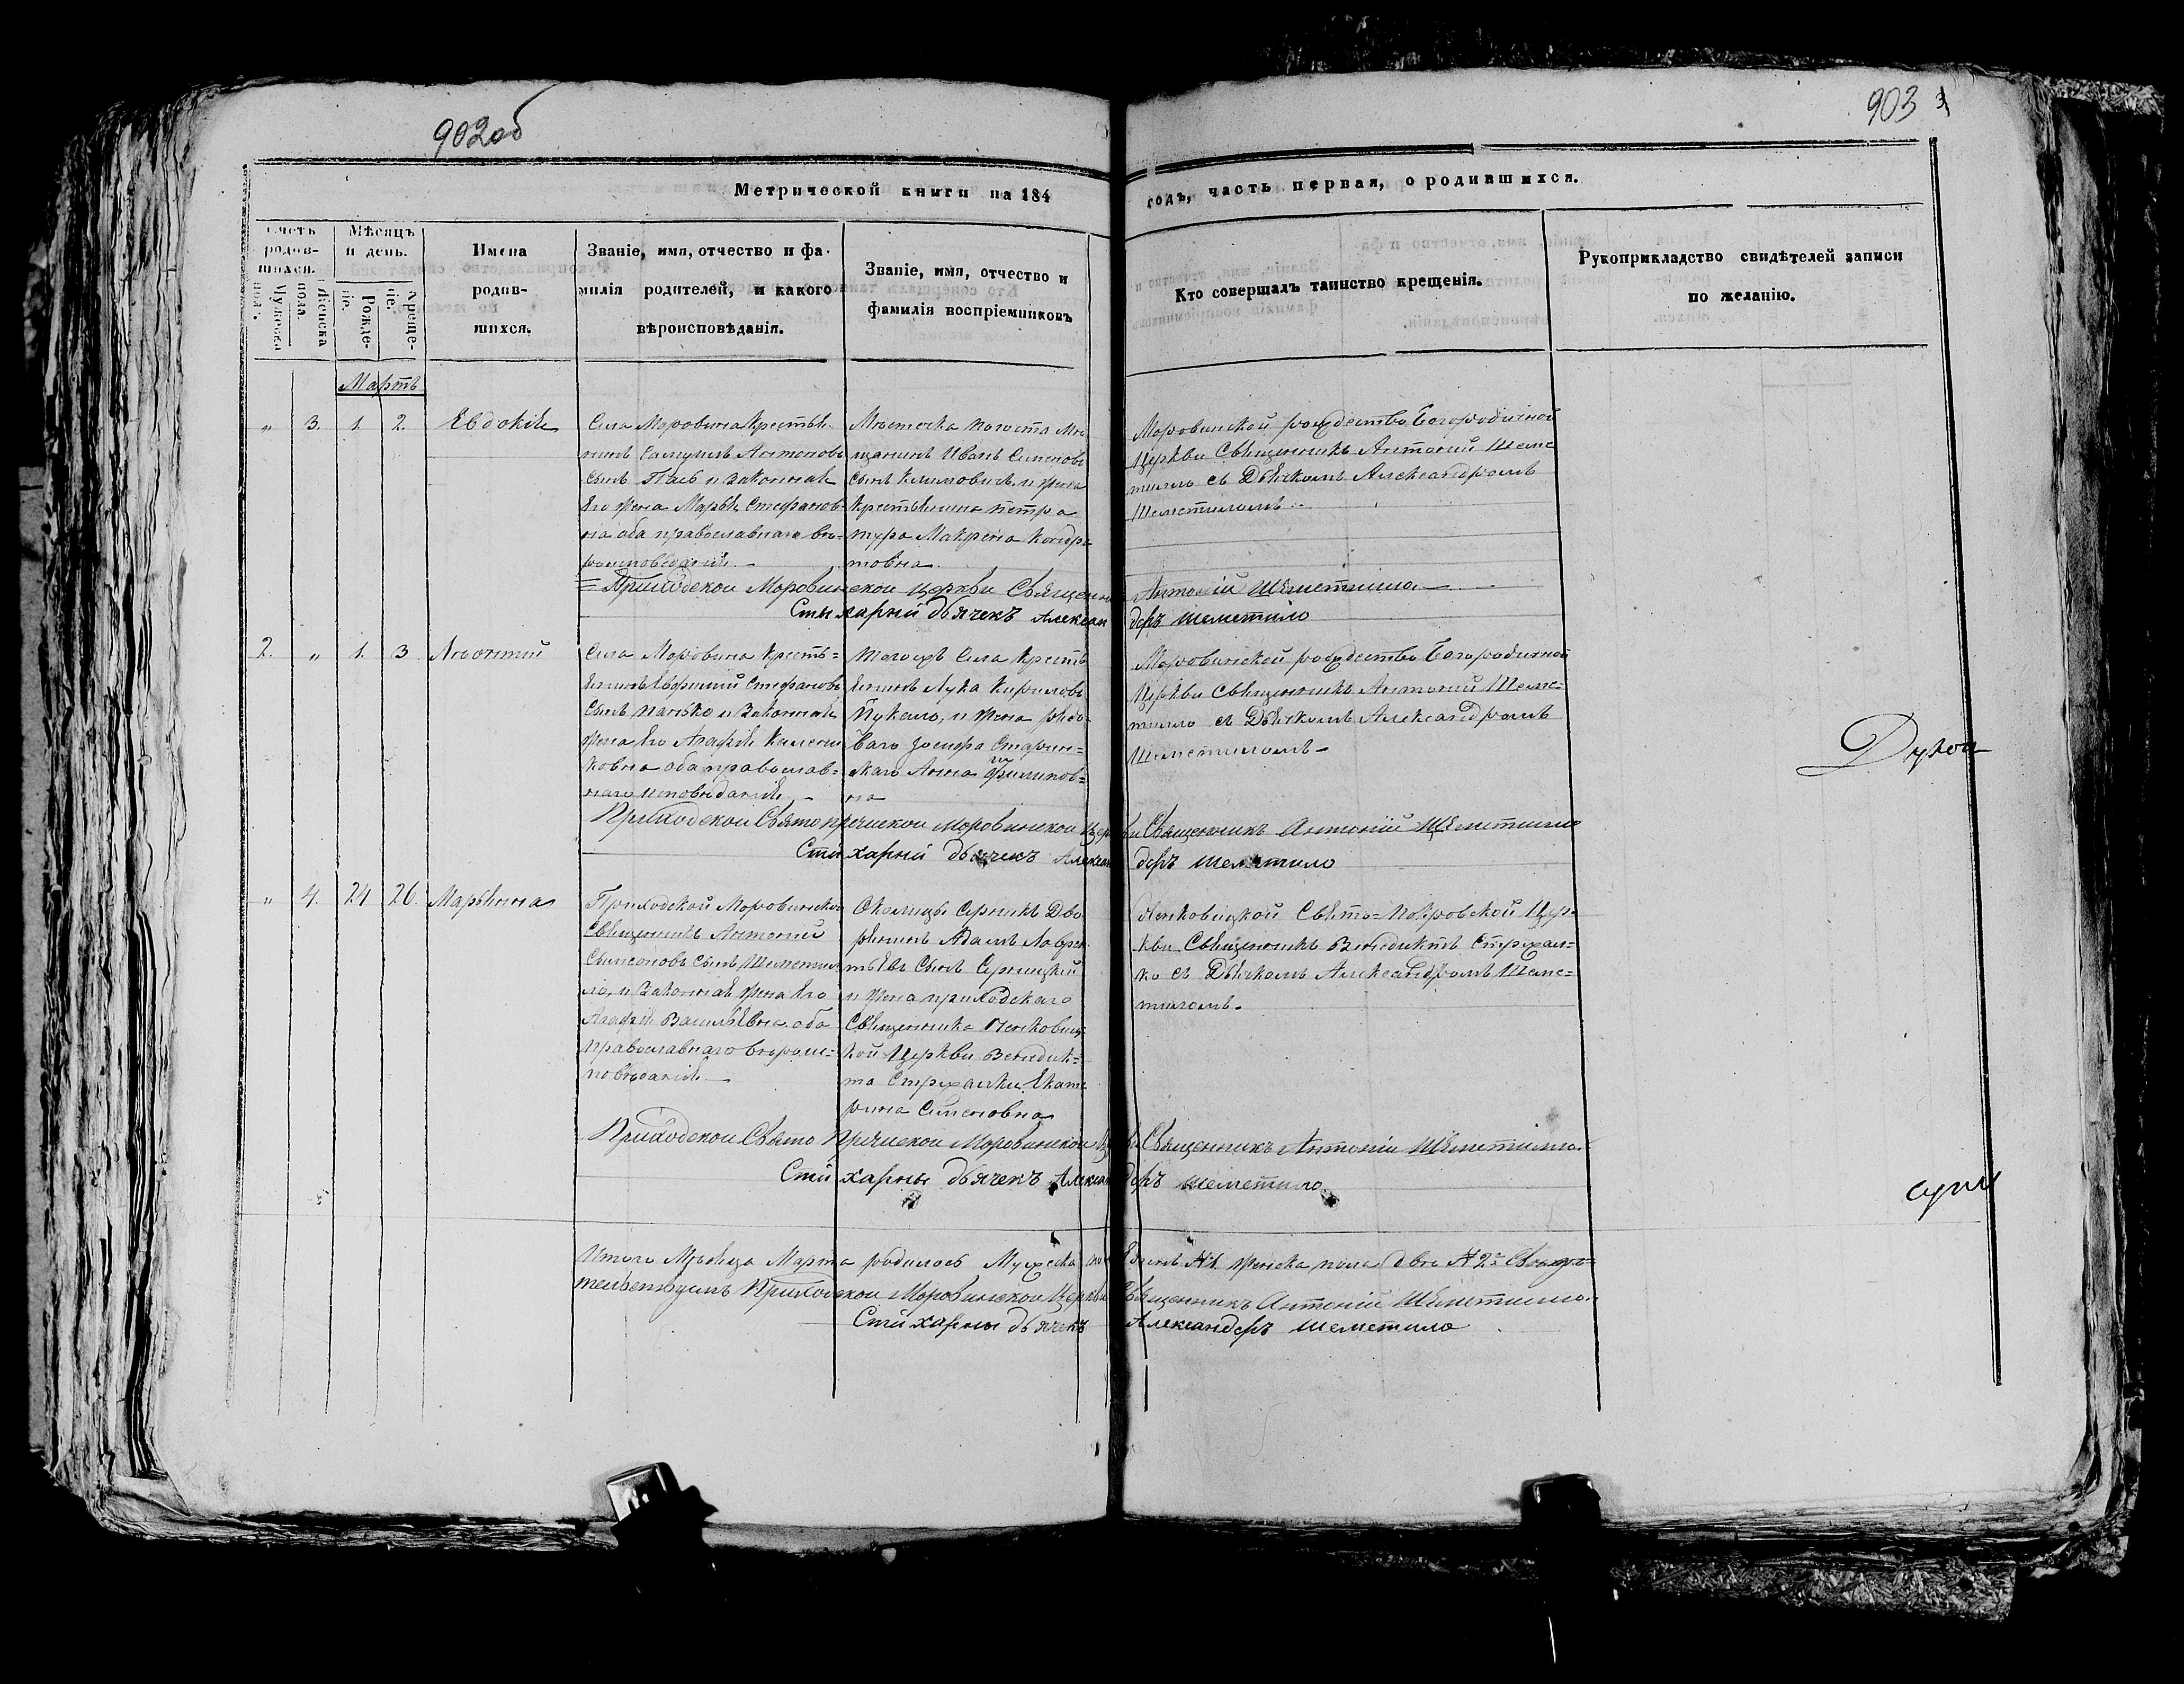 902об
903
Метрической книги на 184 годъ, часть первая, о родившихся.
Счетъ родив-шихся.
Мужеска пола.
Женска пола.
Мѣсяцъ и день.
Рожде-нія.
Креще-нія.
Имена
родив-
шихся.
Званіе, имя, отчество и фа-
милія родителей, и какого
вѣроисповѣданія.
Званіе, имя, отчество и
фамилія воспріемниковъ
Кто совершалъ таинство крещенія.
Рукоприкладство свидѣтелей записи
по желанію.
Мартъ
" 3. 1. 2. Евдокія
Села Моровина Крестья-
нинъ Самуилъ Антоновъ
сынъ и законная
его жена Марья Стефанов-
на оба православнаго вѣ-
роисповѣданія.
Мѣстечка Погоста Мѣ
щанинъ Иванъ Семеновъ
сынъ Климовичъ, и жена
Крестьянина Петра
Макрина Кондра
товна
Моровинской рождество Богородичной
Церкви Священникъ Антоній Шеме
тилло съ Дьячкомъ Александромъ
Шеметиломъ.
Приходской Моровинской церкви Священникъ Антоній Шеметилло
Стихарный дьячекъ Александеръ Шеметило
2. " 1. 3. Леонтій
Села Моровина Кресть=
янинъ Ефимій Стефановъ
сынъ Панько и Законная
жена его Агафія
оба православ=
наго исповѣданія
Тогожъ Села Кресть
янинъ Лука Кириловъ
и жена рядо
ваго Іосифа Старин=
скаго Анна Филипов=
на
Моровинской рождество Богородичной
Церкви Священникъ Антоній Шеме=
тилло съ Дьячкомъ Александромъ
Шеметиломъ
Приходской Свято пречиской Моровинской Церкви Священникъ Антоній Шеметилло
Стихарный дьячекъ Александеръ Шеметило
" 4. 24 26. Марьянна
Приходской Моровинской
Священникъ Антоній
Симеоновъ сынъ Шеметил
ло, и Законная жена его
Агафія Васильевна оба
православнаго вѣроис=
повѣданія
Околицы Серникъ Дво
рянинъ Адамъ Лаврен
тьевъ сынъ Серницкій
и жена приходскаго
Священника Пенковиц
кой Церкви Венедик=
та Екате
рина Семеновна
Пенковицкой Свято=Покровской Цер
кви Священникъ Венедиктъ
ко съ Дьячкомъ Александромъ Шеме=
тиломъ.
Приходской Свято Пречиской Моровинской Церкви Священникъ Антоній Шеметилло.
Стихарны дьячекъ Александеръ Шеметило
Итого Мѣсяца Марта родилось Мужеска пола Единъ №1 женска пола двѣ №2 Свидѣ=
тельствуемъ Приходской Моровинской Церкви Священникъ Антоній Шеметилло.
Стихарны дьячекъ Александеръ Шеметило
Духов